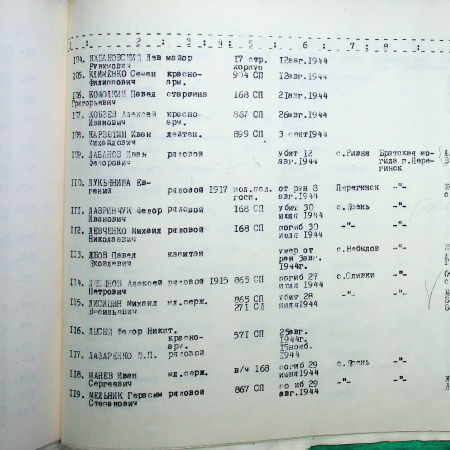 : 2 : 3 : 4 : 5 : 6 : 7 : 8 :
104. КАБАНОВСКИЙ Лев майор 17 стр. 12авг.1944
Рувимович корпус
105. КЛИМЕНКО Семен красно- 904 СП 12авг.1944
Филиппович арм.
106. Павел старшина 168 СП 21авг.1944
Григорьевич
107. КОБЗЕВ Алексей красно- 867 СП 26авг.1944
Иванович арм.
108. Иван лейтен. 899 СП 3 сент1944
Михайлович
109. ЛАБАНОВ Иван рядовой убит 12 с.Ривня Братская мо-
Федорович авг.1944 гила п.Пере-
гинск
110. ЛУКЬЯНИНА Ев-
гений рядовой 1917 пол.пол. от ран 8 Перегинск -"-
госп. авг.1944
111. ЛАВРИНЧУК Федор рядовой 168 СП убит 30 с.Ясень -"-
Иванович июля 1944
112. ЛЕВЧЕНКО Михаил рядовой 168 СП погиб 30 -"- -"-
Николаевич июля 1944
113. Павел капитан умер от с.Небылов -"-
Яковлевич ран 3авг.
1944г.
114. Алексей рядовой 1915 865 СП погиб 27 с.Сливки -"-
Петрович июля 1944
115. ЛИСИЦИН Михаил мл.серж. 865 СП убит 28 -"- -"-
Васильевич 271 СП июля1944
116. Федор Никит. 571 СП 25авг.
красно- 1944г.
арм. 15нояб.
117. ЛАЗАРЕНКО рядовой 1944
118. МАНЕВ Иван мл.серж. в/ч 168 погиб 29 с.Ясень -"-
Сергеевич июля1944
119. МЕЛЬНИК Герасим рядовой 867 СП 29 -"- -"-
Степанович авг.1944